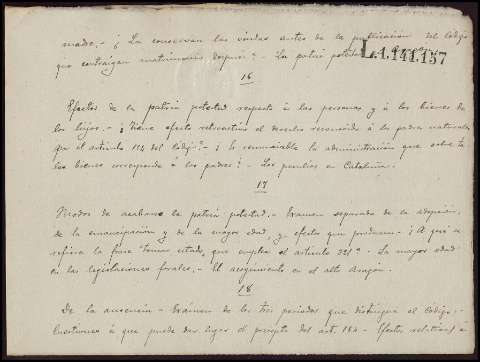 madre.- ¿La conservan las viudas antes de la publicación del Código
que contraigan matrimonio después?- La patria potestad
L.1.141.157
16
Efectos de la patria potestad respecto á las personas y á los bienes de
los hijos.- ¿Tiene efecto retroactivo el derecho reconocido á los padres naturales
por el artículo 154 del Código?- ¿Es renunciable la administración que sobre ta
les bienes corresponde á los padres?- Los peculios en Cataluña.
17
Modos de acabarse la patria potestad.- Exámen separado de la adopción,
de la emancipación y de la mayor edad, y efectos que producen.- ¿A qué se
refiere la frase tomar estado, que emplea el artículo 321?- La mayor edad
en las legislaciones forales.- El acogimiento en el alto Aragón.
18
De la ausencia.- Exámen de los tres periodos que distingue el Código.-
Cuestiones á que puede dar lugar el precepto del art. 184.- Efectos relativos á